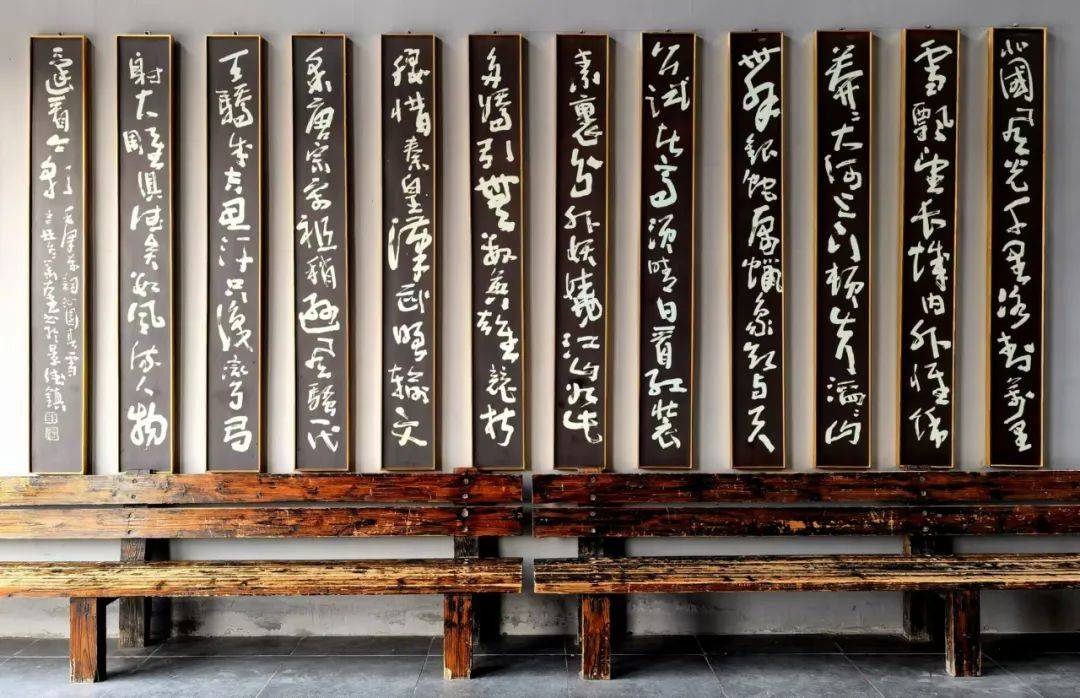 北國風光千里冰封萬里
雪飄望長城内外惟餘
莽々大河上下頓失滔々山
舞銀蛇原馳蠟象欲與天
公試比高須晴日看紅裝
素裹分外妖嬈江山如此
多嬌引無數英雄競折
腰惜秦皇漢武略輸文
采唐宗宋祖稍遜風騷一代
天驕成吉思汗只識彎弓
射大雕俱往矣數風流人物
還看今朝
毛澤東詞沁園春雪
書於景德鎮